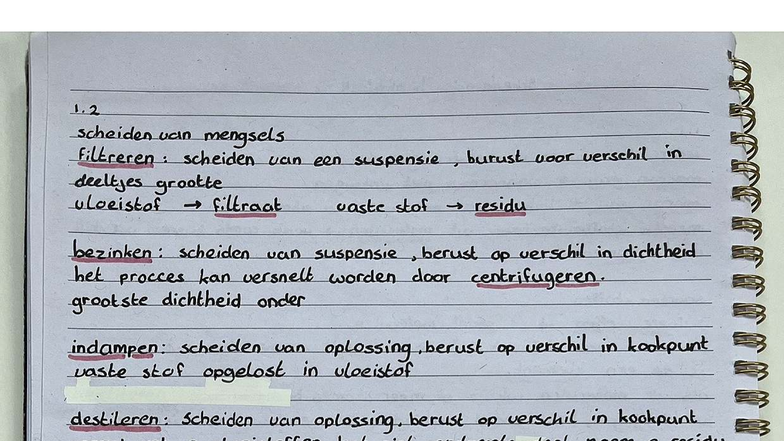 1.2
scheiden van mengsels
filtreren : scheiden van een suspensie , burust voor verschil in
deeltjes grootte
vloeistof → filtraat vaste stof → residu
bezinken : scheiden van suspensie , berust op verschil in dichtheid
het procces kan versnelt worden door centrifugeren.
grootste dichtheid onder
indampen : scheiden van oplossing , berust op verschil in kookpunt
vaste stof opgelost in vloeistof
destileren : scheiden van oplossing, berust op verschil in kookpunt
residu